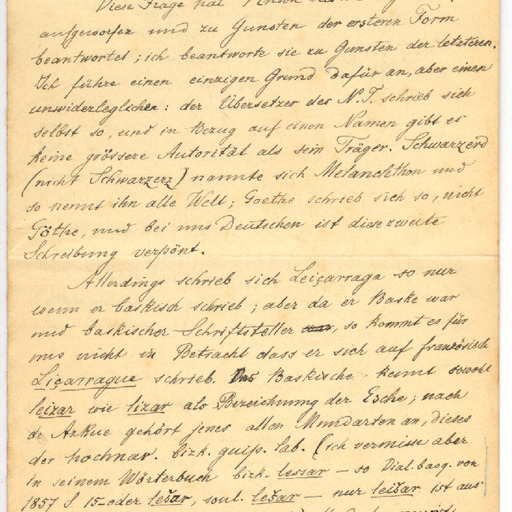 Diese Frage hat Vinson
aufgeworfen und zu Gunsten der ersteren Form
beantwortet; ich beantworte sie zu Gunsten der letzteren.
Ich führe einen einzigen Grund dafür an, aber einen
unwiderleglichen: der Übersetzer des N. T. schrieb sich
selbst so, und in Bezug auf einen Namen gibt es
keine grössere Autorität als sein Träger. Schwarzerd
(nicht Schwarzerz) nannte sich Melanchthon und
so nennt ihn alle Welt; Goethe schrieb sich so, nicht
Göthe, und bei uns Deutschen ist diese zweite
Schreibung verpönt.
Allerdings schrieb sich Leiçarraga so nur
wenn er baskisch schrieb; aber da er Baske war
und baskischer Schriftsteller, so kommt es für
uns nicht in Betracht dass er sich auf französisch
Liçarrague schrieb. Das Baskische kennt sowohl
leizar wie lizar als Bezeichnung der Esche; nach
de Azkue gehört jenes allen Mundarten an, dieses
der hochnav. bizk. guip. lab. (ich vermisse aber
in seinem Wörterbuch bizk. lessar — so Dial. basq. von
1857 S. 15 — oder lešar, soul. lešar — nur leišar ist aus